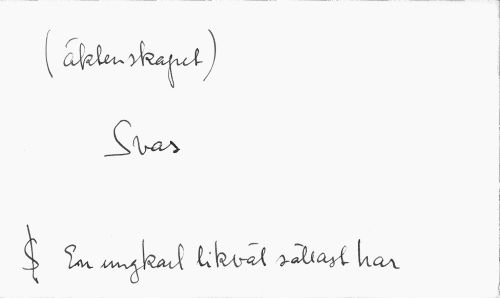 (äktenskapet)
Svas
$ En ungkarl likväl sällast har